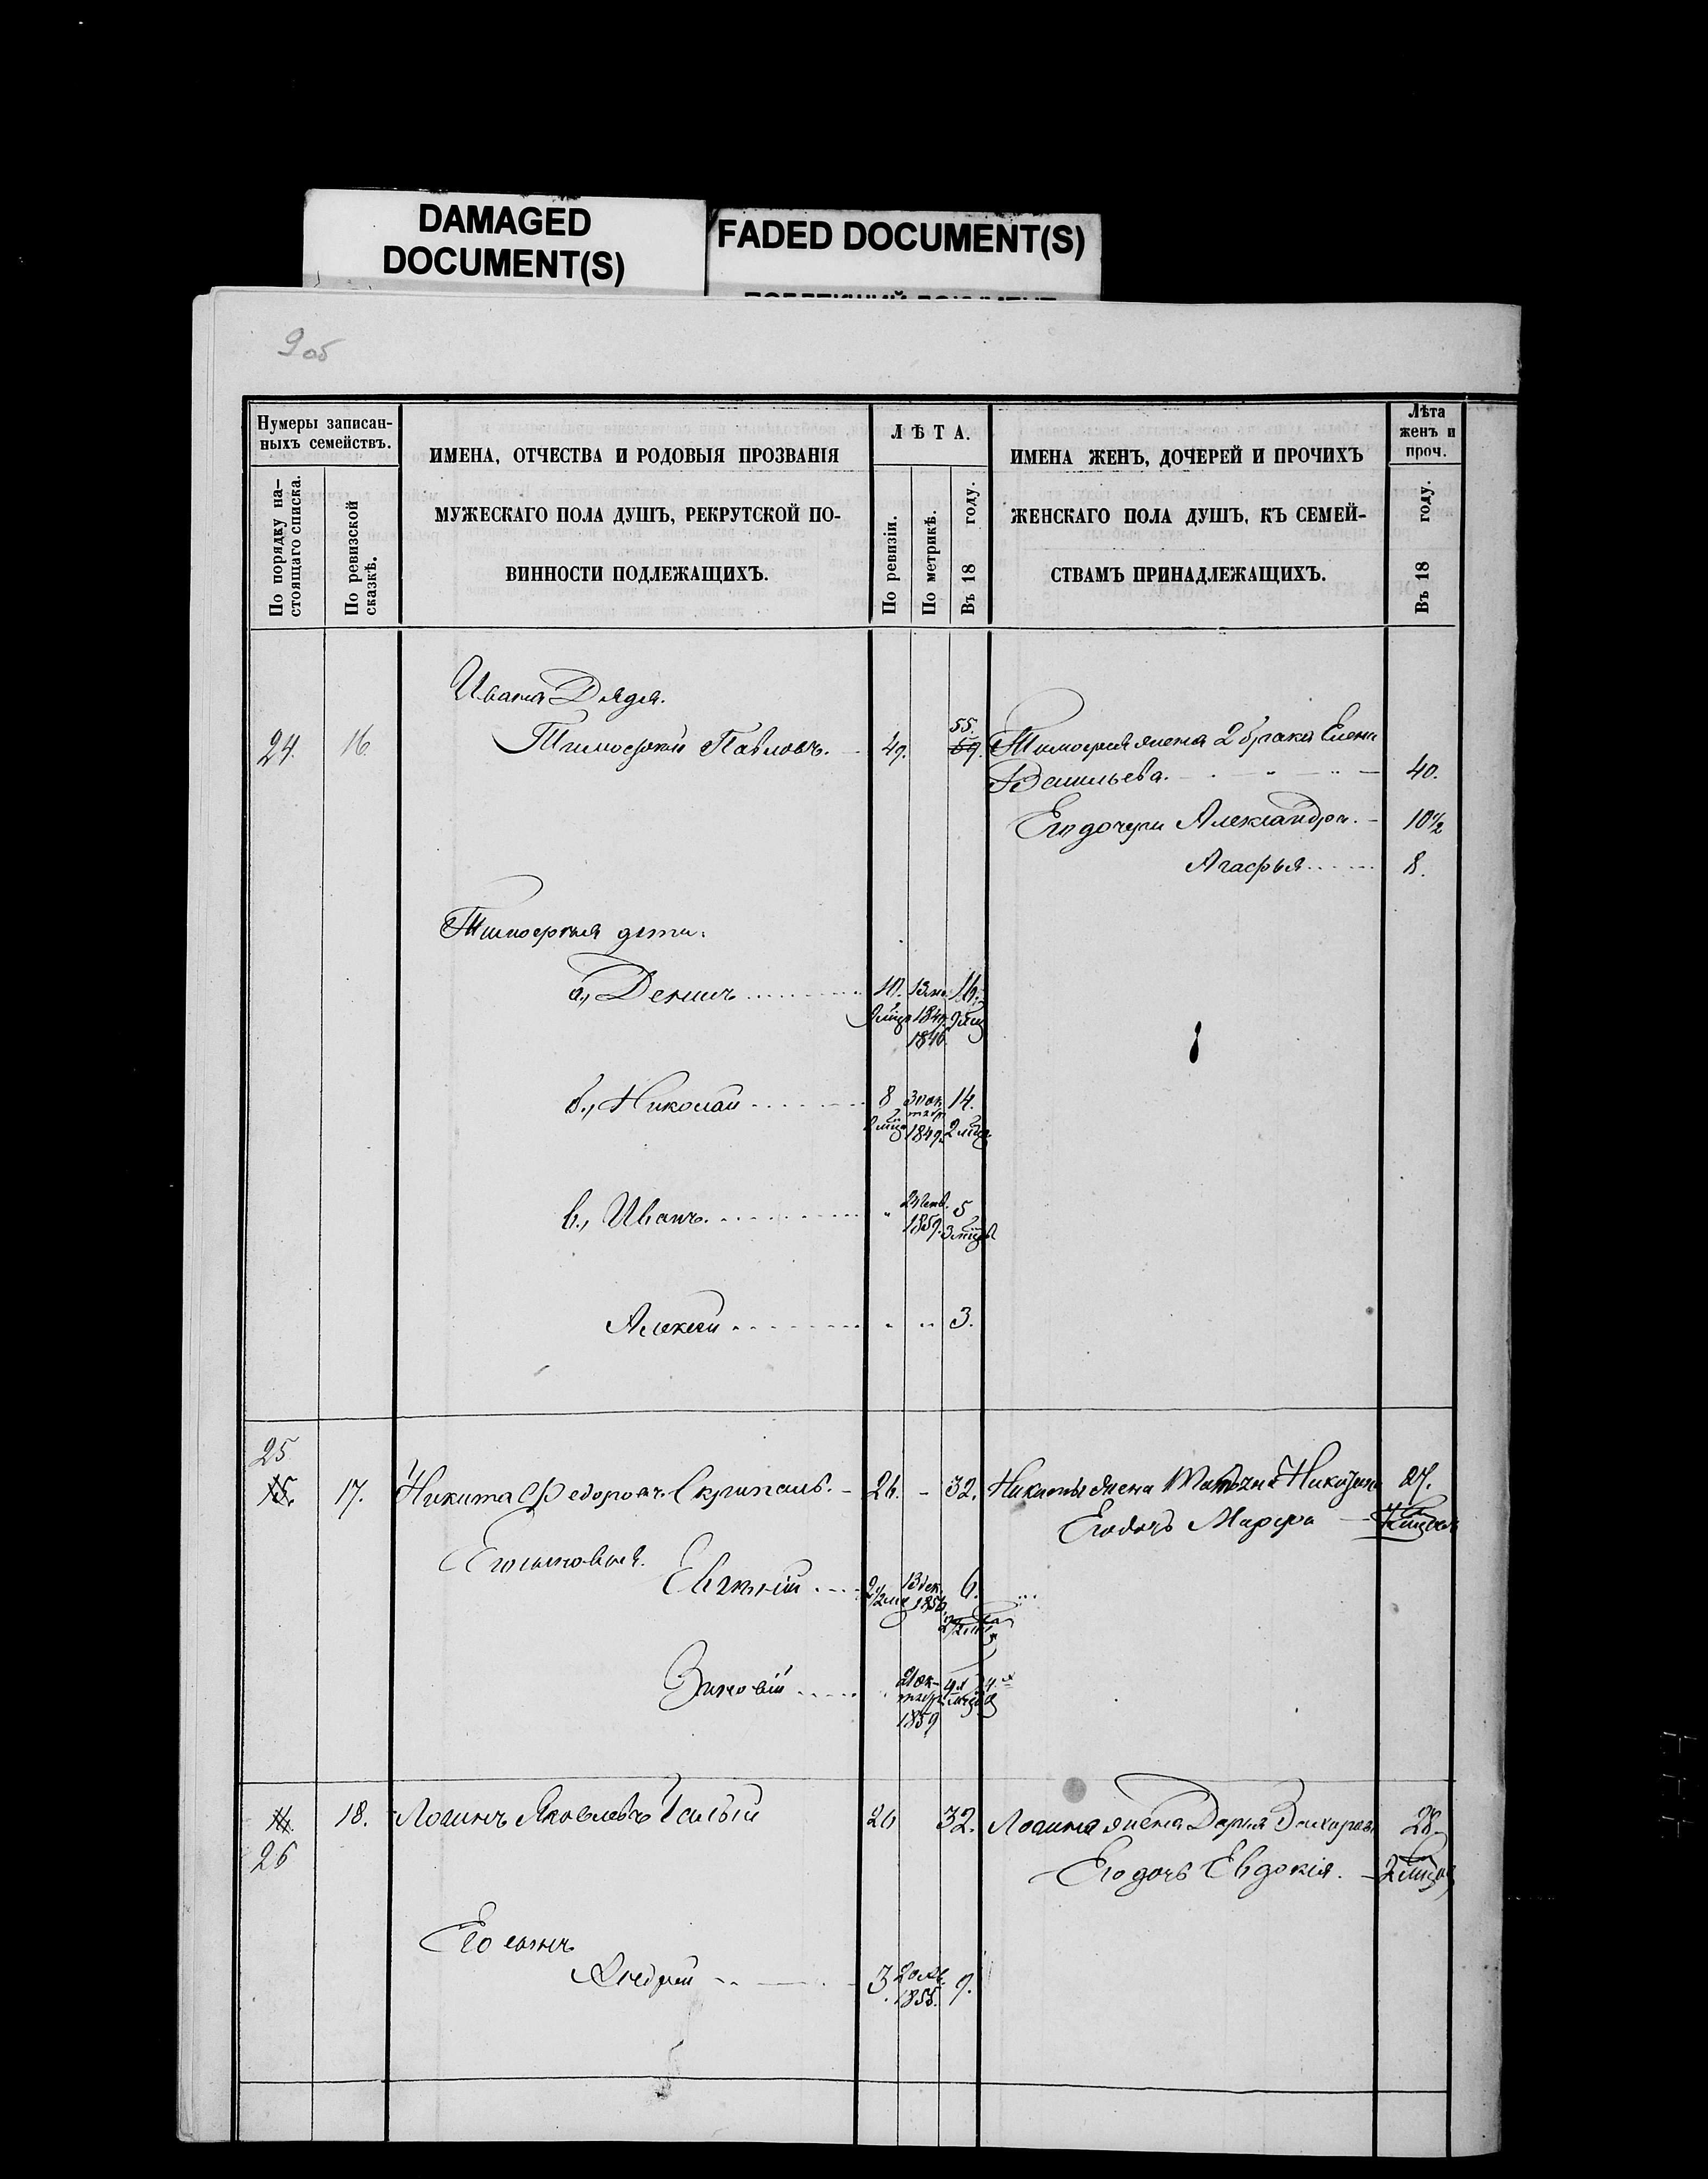 DAMAGED
DOCUMENT(S)
FADED DOCUMENT(S)
9 об
Нумеры записан-
ныхъ семействъ.
По порядку на-
стоящаго списка.
По ревизской
сказкѣ.
ИМЕНА, ОТЧЕСТВА И РОДОВЫЯ ПРОЗВАНІЯ
МУЖЕСКАГО ПОЛА ДУШЪ, РЕКРУТСКОЙ ПО-
ВИННОСТИ ПОДЛЕЖАЩИХЪ.
ЛѢТА.
По ревизіи.
По метрикѣ.
Въ 18 году.
ИМЕНА ЖЕНЪ, ДОЧЕРЕЙ И ПРОЧИХЪ
ЖЕНСКАГО ПОЛА ДУШЪ, КЪ СЕМЕЙ-
СТВАМЪ ПРИНАДЛЕЖАЩИХЪ.
Лѣта
женъ и
проч.
Въ 18 году.
Ивана Дядя.
24. 16 Тимофей Павловъ. 49. 55. Тимофея жена 2 брака Елена
Васильева. 40.
Его дочери Александра. 10½
Агафья 8.
Тимофея дети:
а., Денисъ 10. 16.
1846.
б., Николай 8 30 ок 14.
тябр
2 мц 1849. 2 мц
в., Иванъ. " 5
1859. 3 мцв
Алексей " " 3.
25
15. 17. Никита Федоровъ Скрипаль. 26. - 32. Никиты жена 27.
Его дочь Марфа
Его сыновья.
Евгений 13 дек. 6.
1856
Зиновій 21 ок-
тябр
1859
16. 18. Логинъ Яковлевъ 26 32. Логина жена Дарья Захарова 28.
26
Его дочь Евдокія. 2 мцв
Его сынъ
Андрей 3. 9.
1855.